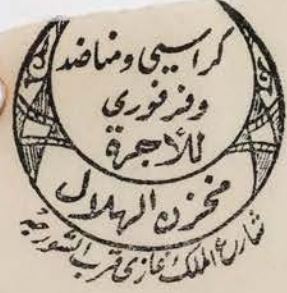 كراسي ومناضد
وفرفوري
للأجرة
مخزن الهلال
شارع الملك غازي قرب الشورجه